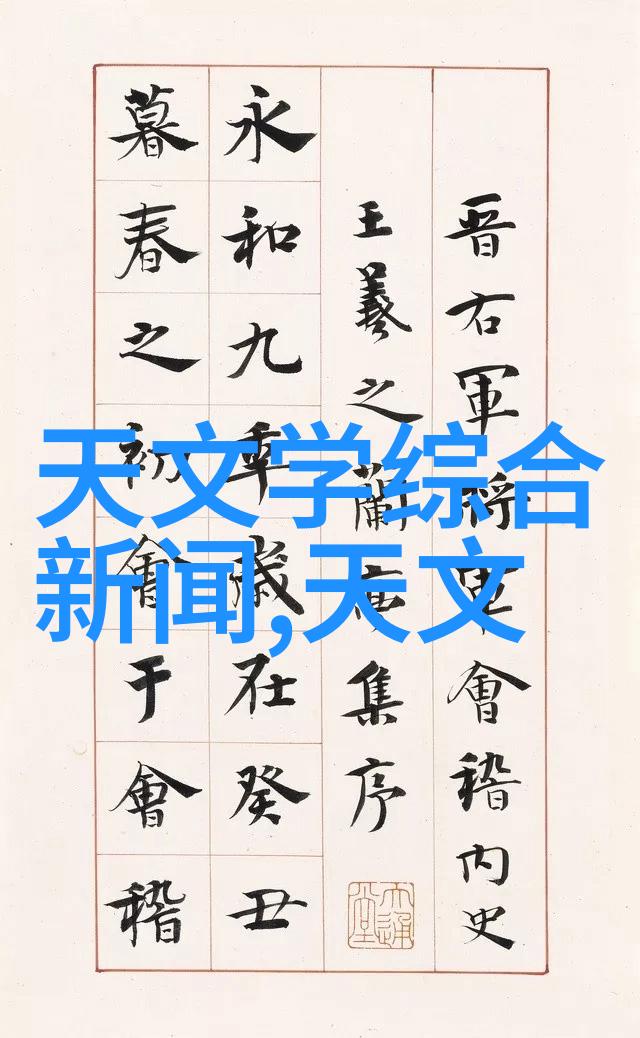 晋右軍将軍會稽内史
王羲之蘭亭集序
永和九年歲在癸丑
暮春之初會于會稽
天文学综合
新闻,天文